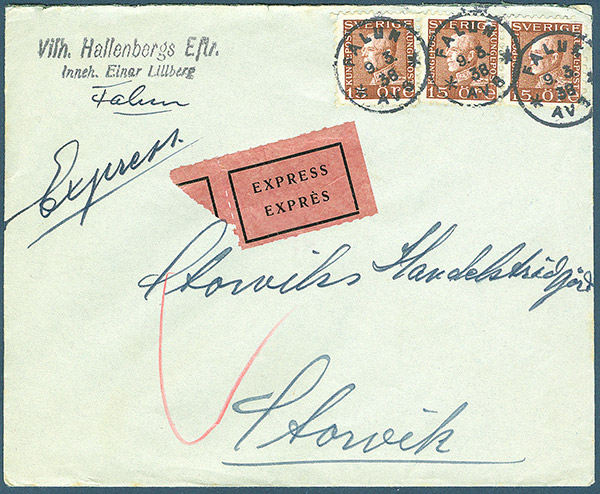 Vilh. Hallenbergs Eftr.
Inneh. Einar Lillberg
Falun
Express.
EXPRESS
EXPRÈS
SVERIGE
SVERIGE
SVERIGE
15 ÖRE
15 ÖRE
15 ÖRE
FALUN
9.3.
38
AVG
FALUN
9.3.
38
AVG
FALUN
9.3
38
AVG
Storviks
Storvik